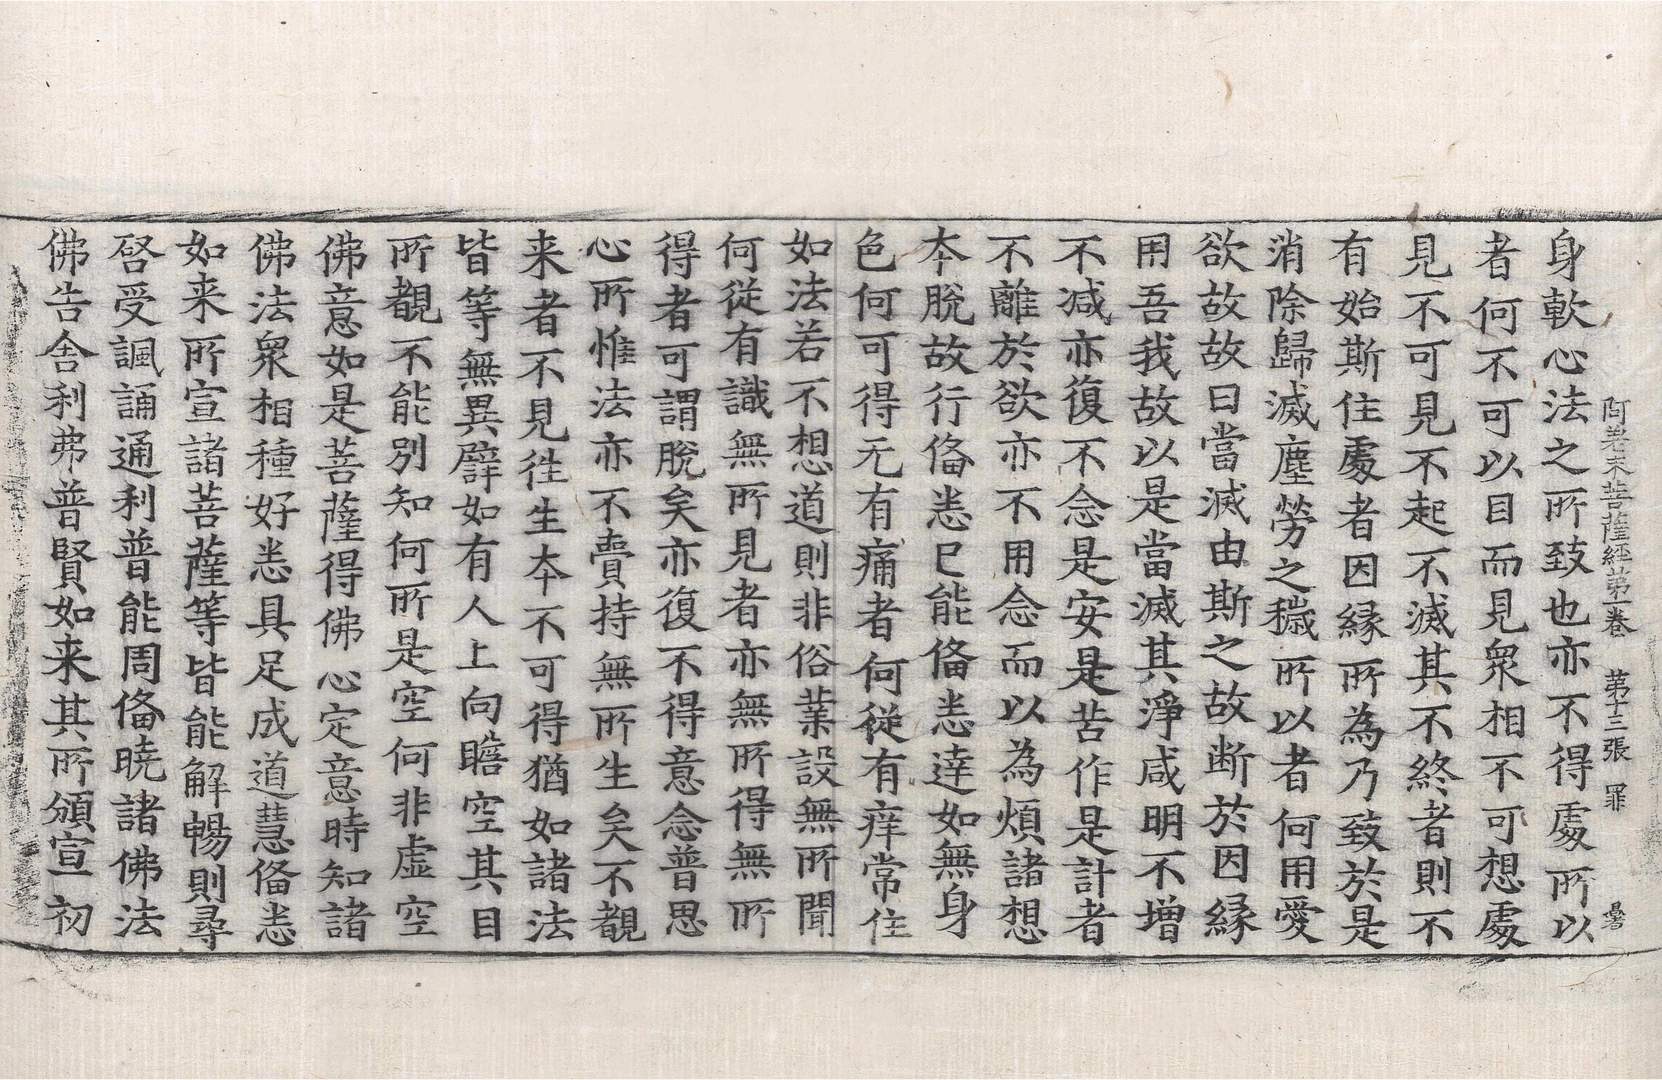 阿差末菩薩經第一卷　第十三張　罪
身軟心法之所致也亦不得處所以
者何不可以目而見衆相不可想處
見不可見不起不滅其不終者則不
有始斯住處者因縁所為乃致於是
消除歸滅塵勞之穢所以者何用愛
欲故故曰當滅由斯之故断於因縁
用吾我故以是當滅其淨咸明不增
不減亦復不念是安是苦作是計者
不離於欲亦不用念而以為煩諸想
本脫故行俻悉已能俻悉達如無身
色何可得无有痛者何從有痒常住
如法若不想道則非俗業設無所聞
何從有識無所見者亦無所得無所
得者可謂脫矣亦復不得意念普思
心所惟法亦不賣持無所生矣不覩
来者不見徃生夲不可得猶如諸法
皆等無異譬如有人上向瞻空其目
所覩不能别知何所是空何非虚空
佛意如是菩薩得佛心定意時知諸
佛法衆相種好悉具足成道慧俻悉
如来所宣諸菩薩等皆能解暢則尋
啓受諷誦通利普能周俻曉諸佛法
佛告舎利弗普賢如来其所頒宣初